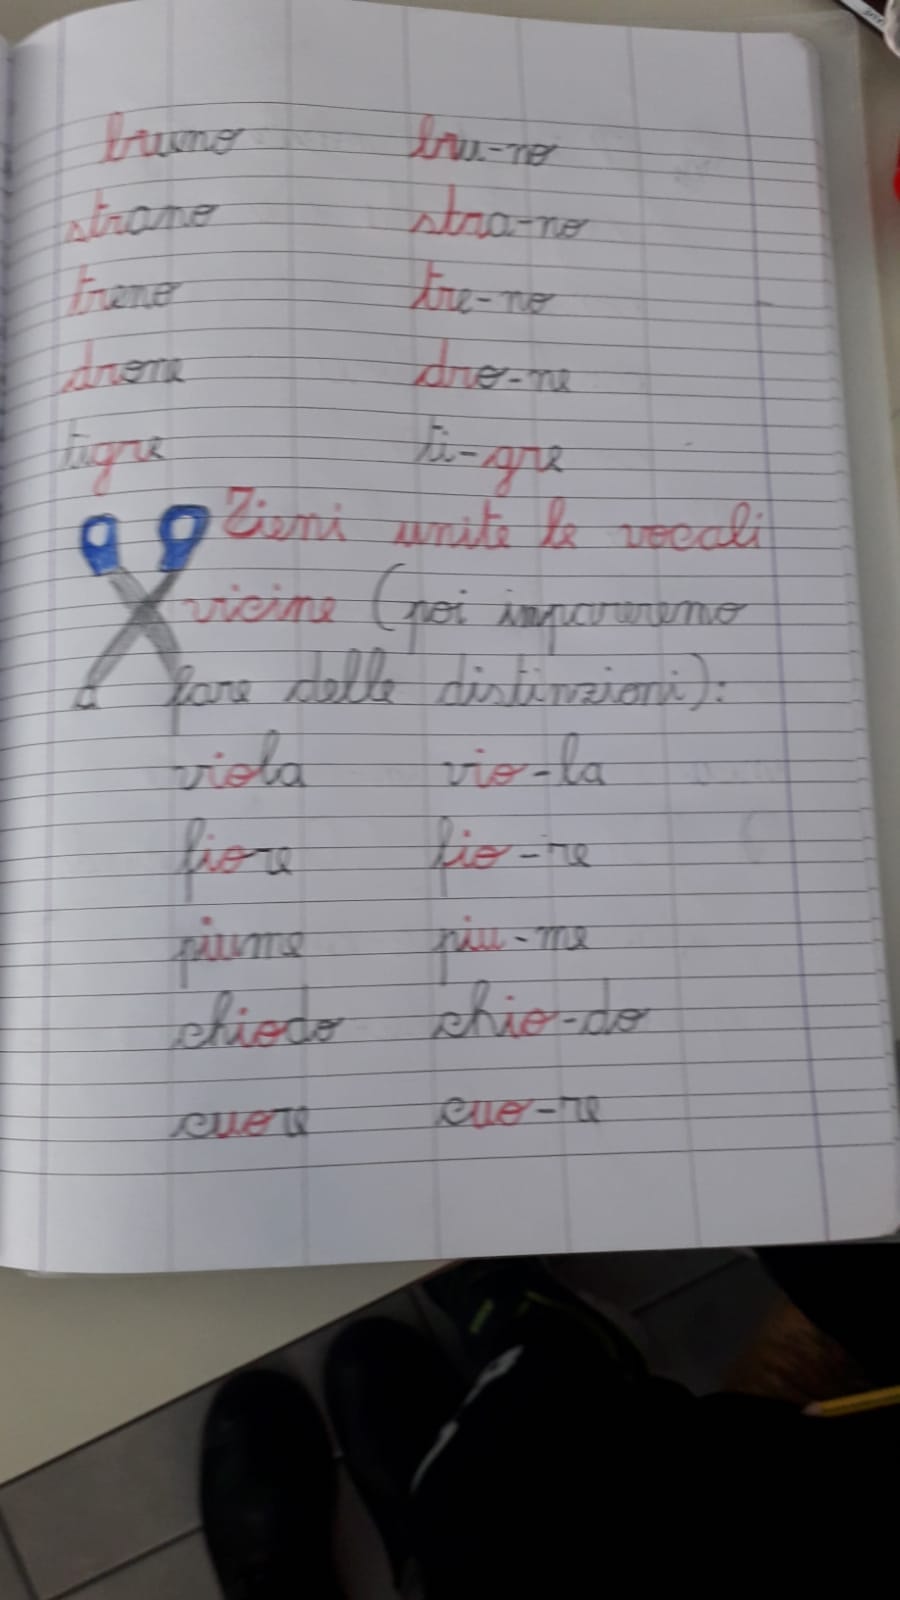 bruno bru-no
strano stra-no
treno tre-no
drone dro-ne
tigre ti-gre
Tieni unite le vocali
vicine (poi impareremo
a fare delle distinzioni):
viola vio-la
fiore fio-re
piume piu-me
chiodo chio-do
cuore cuo-re